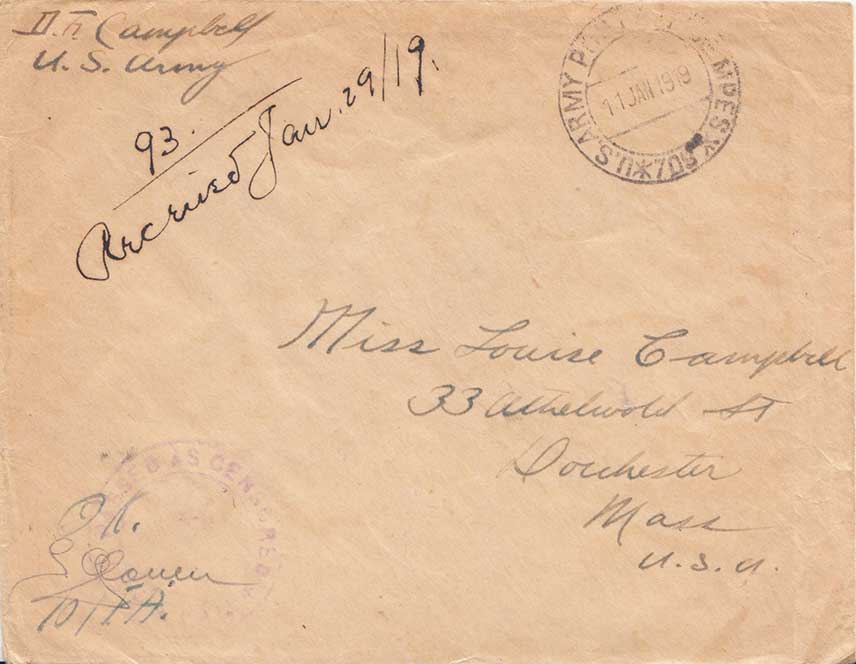 D. F. Campbell
U. S. Army
93.
Received Jan. 29/19.
U.S. ARMY
11 JAN 1919
702
Miss Louise Campbell
33 Athelwold St
Dorchester
Mass
U. S. A.
AS CENSORED
O.K.